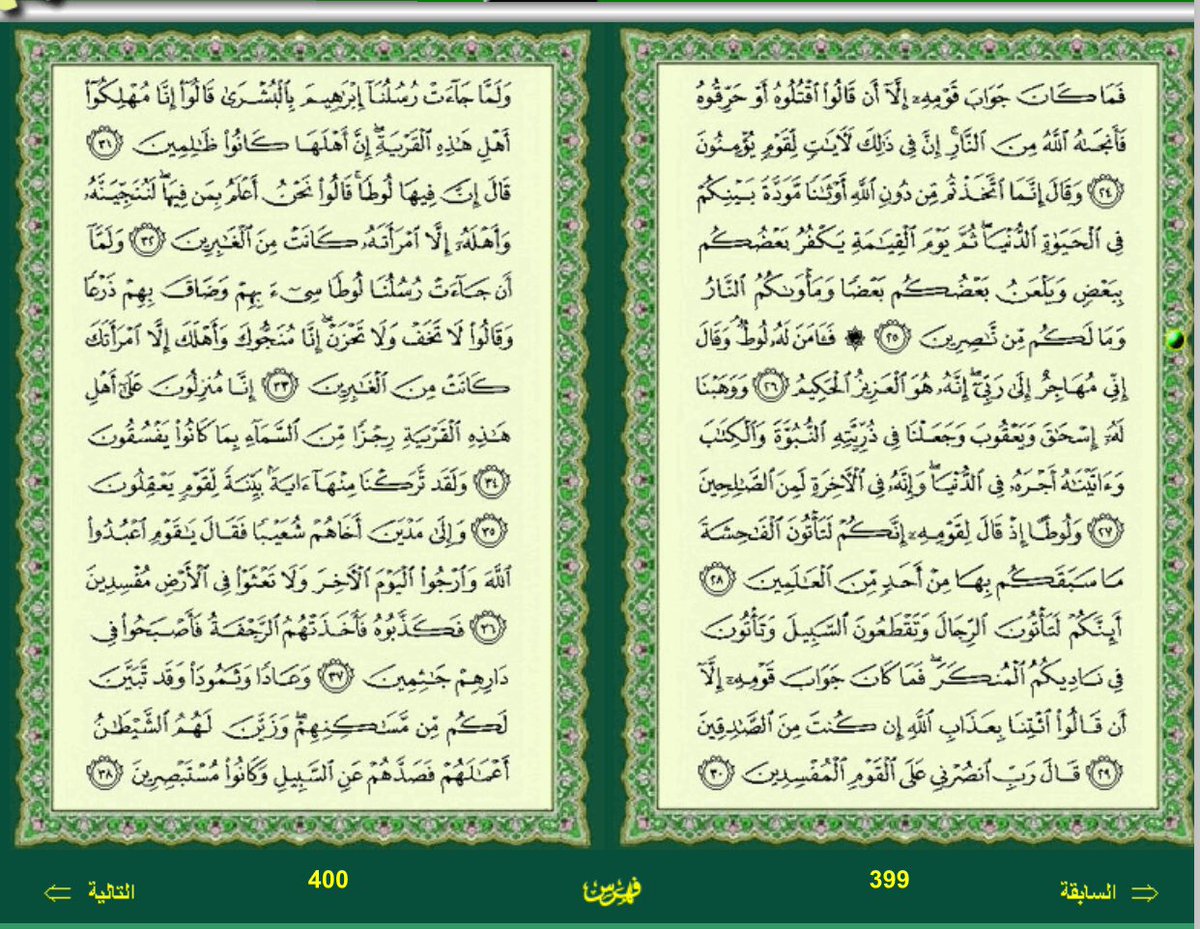 فَمَا كَانَ جَوَابَ قَوْمِهِۦٓ إِلَّآ أَن قَالُوا۟ ٱقْتُلُوهُ أَوْ حَرِّقُوهُ
فَأَنجَىٰهُ ٱللَّهُ مِنَ ٱلنَّارِ ۚ إِنَّ فِى ذَٰلِكَ لَـَٔايَٰتٍ لِّقَوْمٍ يُؤْمِنُونَ
﴿٢٤﴾ وَقَالَ إِنَّمَا ٱتَّخَذْتُم مِّن دُونِ ٱللَّهِ أَوْثَٰنًا مَّوَدَّةَ بَيْنِكُمْ
فِى ٱلْحَيَوٰةِ ٱلدُّنْيَا ۖ ثُمَّ يَوْمَ ٱلْقِيَٰمَةِ يَكْفُرُ بَعْضُكُم
بِبَعْضٍ وَيَلْعَنُ بَعْضُكُم بَعْضًا وَمَأْوَىٰكُمُ ٱلنَّارُ
وَمَا لَكُم مِّن نَّٰصِرِينَ ﴿٢٥﴾ ۞ فَـَٔامَنَ لَهُۥ لُوطٌ ۘ وَقَالَ
إِنِّى مُهَاجِرٌ إِلَىٰ رَبِّىٓ ۖ إِنَّهُۥ هُوَ ٱلْعَزِيزُ ٱلْحَكِيمُ ﴿٢٦﴾ وَوَهَبْنَا
لَهُۥٓ إِسْحَٰقَ وَيَعْقُوبَ وَجَعَلْنَا فِى ذُرِّيَّتِهِ ٱلنُّبُوَّةَ وَٱلْكِتَٰبَ
وَءَاتَيْنَٰهُ أَجْرَهُۥ فِى ٱلدُّنْيَا ۖ وَإِنَّهُۥ فِى ٱلْـَٔاخِرَةِ لَمِنَ ٱلصَّٰلِحِينَ
﴿٢٧﴾ وَلُوطًا إِذْ قَالَ لِقَوْمِهِۦٓ إِنَّكُمْ لَتَأْتُونَ ٱلْفَٰحِشَةَ
مَا سَبَقَكُم بِهَا مِنْ أَحَدٍ مِّنَ ٱلْعَٰلَمِينَ ﴿٢٨﴾
أَئِنَّكُمْ لَتَأْتُونَ ٱلرِّجَالَ وَتَقْطَعُونَ ٱلسَّبِيلَ وَتَأْتُونَ
فِى نَادِيكُمُ ٱلْمُنكَرَ ۖ فَمَا كَانَ جَوَابَ قَوْمِهِۦٓ إِلَّآ
أَن قَالُوا۟ ٱئْتِنَا بِعَذَابِ ٱللَّهِ إِن كُنتَ مِنَ ٱلصَّٰدِقِينَ
﴿٢٩﴾ قَالَ رَبِّ ٱنصُرْنِى عَلَى ٱلْقَوْمِ ٱلْمُفْسِدِينَ ﴿٣٠﴾
وَلَمَّا جَآءَتْ رُسُلُنَآ إِبْرَٰهِيمَ بِٱلْبُشْرَىٰ قَالُوٓا۟ إِنَّا مُهْلِكُوٓا۟
أَهْلِ هَٰذِهِ ٱلْقَرْيَةِ ۖ إِنَّ أَهْلَهَا كَانُوا۟ ظَٰلِمِينَ ﴿٣١﴾
قَالَ إِنَّ فِيهَا لُوطًا ۚ قَالُوا۟ نَحْنُ أَعْلَمُ بِمَن فِيهَا ۖ لَنُنَجِّيَنَّهُۥ
وَأَهْلَهُۥٓ إِلَّا ٱمْرَأَتَهُۥ كَانَتْ مِنَ ٱلْغَٰبِرِينَ ﴿٣٢﴾ وَلَمَّآ
أَن جَآءَتْ رُسُلُنَا لُوطًا سِىٓءَ بِهِمْ وَضَاقَ بِهِمْ ذَرْعًا
وَقَالُوا۟ لَا تَخَفْ وَلَا تَحْزَنْ ۖ إِنَّا مُنَجُّوكَ وَأَهْلَكَ إِلَّا ٱمْرَأَتَكَ
كَانَتْ مِنَ ٱلْغَٰبِرِينَ ﴿٣٣﴾ إِنَّا مُنزِلُونَ عَلَىٰٓ أَهْلِ
هَٰذِهِ ٱلْقَرْيَةِ رِجْزًا مِّنَ ٱلسَّمَآءِ بِمَا كَانُوا۟ يَفْسُقُونَ
﴿٣٤﴾ وَلَقَد تَّرَكْنَا مِنْهَآ ءَايَةًۢ بَيِّنَةً لِّقَوْمٍ يَعْقِلُونَ
﴿٣٥﴾ وَإِلَىٰ مَدْيَنَ أَخَاهُمْ شُعَيْبًا فَقَالَ يَٰقَوْمِ ٱعْبُدُوا۟
ٱللَّهَ وَٱرْجُوا۟ ٱلْيَوْمَ ٱلْـَٔاخِرَ وَلَا تَعْثَوْا۟ فِى ٱلْأَرْضِ مُفْسِدِينَ
﴿٣٦﴾ فَكَذَّبُوهُ فَأَخَذَتْهُمُ ٱلرَّجْفَةُ فَأَصْبَحُوا۟ فِى
دَارِهِمْ جَٰثِمِينَ ﴿٣٧﴾ وَعَادًا وَثَمُودَا۟ وَقَد تَّبَيَّنَ
لَكُم مِّن مَّسَٰكِنِهِمْ ۖ وَزَيَّنَ لَهُمُ ٱلشَّيْطَٰنُ
أَعْمَٰلَهُمْ فَصَدَّهُمْ عَنِ ٱلسَّبِيلِ وَكَانُوا۟ مُسْتَبْصِرِينَ ﴿٣٨﴾
السابقة 399 فهرس 400 التالية